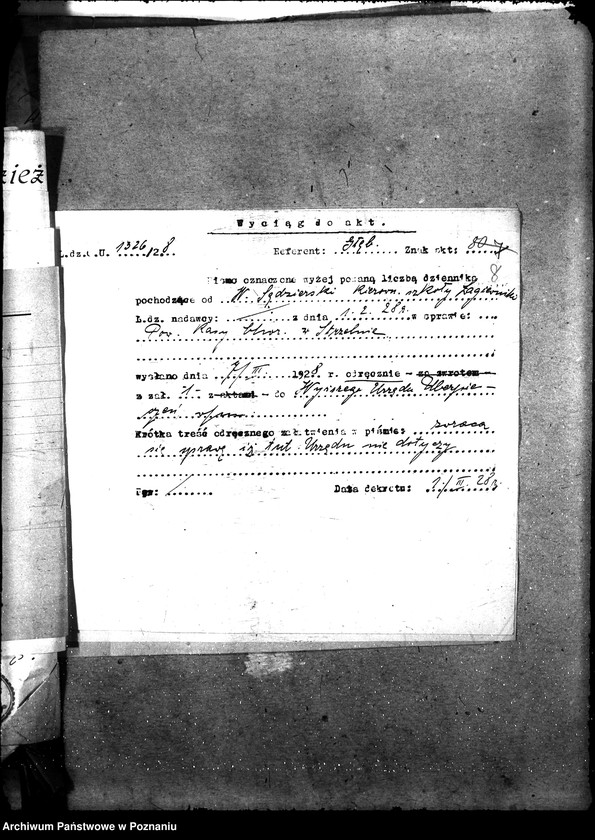 zież
Wyciąg do akt.
L.dz.O.U. 1326/28. Referent: Głąb. Znak akt: 80
8
Pismo oznaczone wyżej podaną liczbą dziennika
pochodzące od W. Sędzierski kierown. szkoły Łagiewniki
L.dz. nadawcy: z dnia 1.2.28 r. w sprawie:
Pow. Kasy Chor. w Strzelnie
wysłano dnia 7/III 1928 r. odręcznie - za zwrotem -
z zał. 1.- z aktami - do Wyższego Urzędu Ubezpie-
czeń
Krótka treść odręcznego załatwienia w piśmie: zwraca
się sprawę iż tut. Urzędu nie dotyczy
Ter: Data dekretu: 1/II. 28 r.
Archiwum Państwowe w Poznaniu